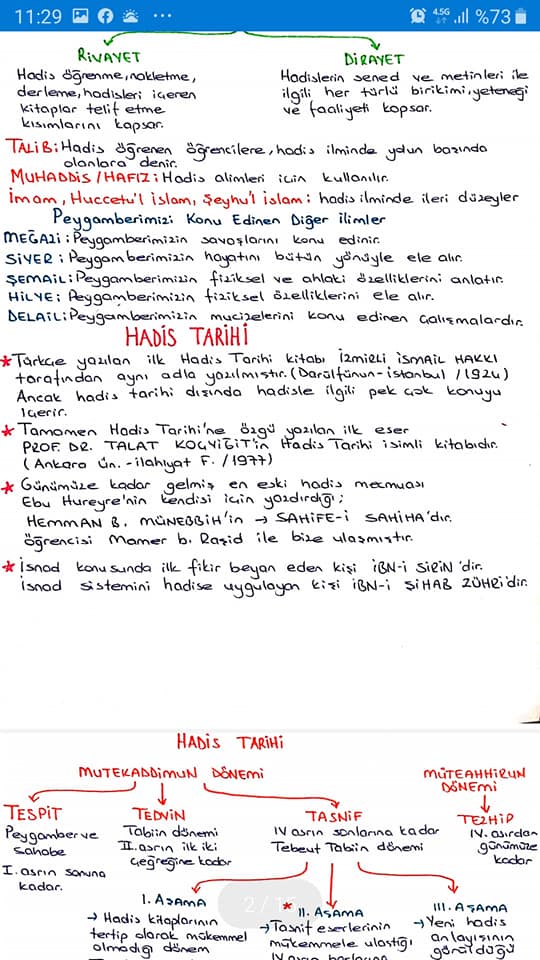 11:29
4.5G
%73
RİVAYET
Hadis öğrenme, nakletme,
derleme, hadisleri içeren
kitaplar telif etme
kısımlarını kapsar.
DİRAYET
Hadislerin sened ve metinleri ile
ilgili her türlü birikimi, yeteneği
ve faaliyeti kapsar.
TALİB: Hadis öğrenen öğrencilere, hadis ilminde yolun başında
olanlara denir.
MUHADDİS / HAFIZ: Hadis alimleri için kullanılır.
İmam, Huccetu'l İslam, Şeyhu'l İslam: hadis ilminde ileri düzeyler
Peygamberimizi Konu Edinen Diğer İlimler
MEĞAZİ: Peygamberimizin savaşlarını konu edinir.
SİYER: Peygamberimizin hayatını bütün yönüyle ele alır.
ŞEMAİL: Peygamberimizin fiziksel ve ahlaki özelliklerini anlatır.
HİLYE: Peygamberimizin fiziksel özelliklerini ele alır.
DELAİL: Peygamberimizin mucizelerini konu edinen çalışmalardır.
HADİS TARİHİ
* Türkçe yazılan ilk Hadis Tarihi kitabı İZMİRLİ İSMAİL HAKKI
tarafından aynı adla yazılmıştır. (Darülfünun-İstanbul / 1924)
Ancak hadis tarihi dışında hadisle ilgili pek çok konuyu
içerir.
* Tamamen Hadis Tarihi'ne özgü yazılan ilk eser
PROF. DR. TALAT KOÇYİĞİT'in Hadis Tarihi isimli kitabıdır.
(Ankara Ün. - İlahiyat F. / 1977)
* Günümüze kadar gelmiş en eski hadis mecmuası
Ebu Hureyre'nin kendisi için yazdırdığı;
HEMMAN B. MÜNEBBİH'in → SAHİFE-İ SAHİHA'dır.
Öğrencisi Mamer b. Raşid ile bize ulaşmıştır.
* İsnad konusunda ilk fikir beyan eden kişi İBN-İ SİRİN'dir.
İsnad sistemini hadise uygulayan kişi İBN-İ ŞİHAB ZÜHRİ'dir.
HADİS TARİHİ
MUTEKADDİMUN DÖNEMİ
MÜTEAHHİRUN
DÖNEMİ
TESPİT
Peygamber ve
Sahabe
I. asrın sonuna
kadar.
TEDVİN
Tabiin dönemi
II. asrın ilk iki
çeyreğine kadar
TASNİF
IV asrın sonlarına kadar
Tebeut Tabiin dönemi
TEZHİP
IV. asırdan
günümüze
kadar
I. AŞAMA
→ Hadis kitaplarının
tertip olarak mükemmel
olmadığı dönem
2 / 15
* II. AŞAMA
→ Tasnif eserlerinin
mükemmele ulaştığı
III. AŞAMA
→ Yeni hadis
anlayışının
görüldüğü